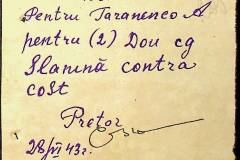 Pentru Taranenco A
pentru (2) Dou cg
Slanină contra
cost
Pretor
28/VI 43г.